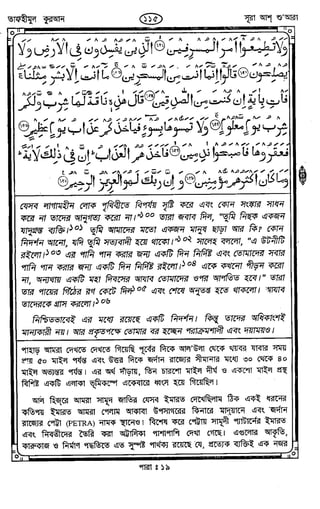 তাফহীমুল কুরআন
১১৫
সূরা আশ্ শু'আরা
وَلَا تُطِيعُوا أَمْرَ الْمُسْرِفِينَ ﴿١٥١﴾ الَّذِينَ يُفْسِدُونَ فِي الْأَرْضِ وَلَا
يُصْلِحُونَ ﴿١٥٢﴾ قَالُوا إِنَّمَا أَنتَ مِنَ الْمُسَحَّرِينَ ﴿١٥٣﴾ مَا أَنتَ إِلَّا بَشَرٌ مِّثْلُنَا
فَأْتِ بِآيَةٍ إِن كُنتَ مِنَ الصَّادِقِينَ ﴿١٥٤﴾ قَالَ هَٰذِهِ نَاقَةٌ لَّهَا شِرْبٌ وَلَكُمْ
شِرْبُ يَوْمٍ مَّعْلُومٍ ﴿١٥٥﴾ وَلَا تَمَسُّوهَا بِسُوءٍ فَيَأْخُذَكُمْ عَذَابُ يَوْمٍ عَظِيمٍ ﴿١٥٦﴾
فَعَقَرُوهَا فَأَصْبَحُوا نَادِمِينَ ﴿١٥٧﴾ فَأَخَذَهُمُ الْعَذَابُ إِنَّ فِي ذَٰلِكَ لَآيَةً
وَمَا كَانَ أَكْثَرُهُم مُّؤْمِنِينَ ﴿١٥٨﴾ وَإِنَّ رَبَّكَ لَهُوَ الْعَزِيزُ الرَّحِيمُ ﴿١٥٩﴾
যেসব লাগামহীন লোক পৃথিবীতে বিপর্যয় সৃষ্টি করে এবং কোন সংস্কার সাধন
করে না তাদের আনুগত্য করো না।"১০০ তারা জবাব দিল, "তুমি নিছক একজন
যাদুগ্রস্ত ব্যক্তি।১০১ তুমি আমাদের মতো একজন মানুষ ছাড়া আর কি? কোন
নিদর্শন আনো, যদি তুমি সত্যবাদী হয়ে থাকো।"১০২ সালেহ বললো, "এ উটনীটি
রইলো।১০৩ এর পানি পান করার জন্য একটি দিন নির্দিষ্ট এবং তোমাদের সবার
পানি পান করার জন্য একটি দিন নির্দিষ্ট রইলো।১০৪ একে কখনো পীড়ন করো
না, অন্যথায় একটি মহা দিবসের আযাব তোমাদের ওপর আপতিত হবে।" তারা
তার পায়ের গিঁঠের রগ কেটে দিল১০৫ এবং শেষে অনুতপ্ত হতে থাকলো। আযাব
তাদেরকে গ্রাস করলো।১০৬
নিশ্চিতভাবেই এর মধ্যে রয়েছে একটি নিদর্শন। কিন্তু তাদের অধিকাংশই
মান্যকারী নয়। আর প্রকৃতপক্ষে তোমার রব হচ্ছেন পরাক্রমশালী এবং দয়াময়ও।
পাহাড় আমরা দেখতে দেখতে গিয়েছি পূর্বের দিকে আল'উলা থেকে খয়বর যাবার সময়
প্রায় ৫০ মাইল পর্যন্ত এবং উত্তর দিকে জর্দান রাজ্যের সীমানার মধ্যে ৩০ থেকে ৪০
মাইল অভ্যন্তর পর্যন্ত। এর অর্থ দাঁড়ায়, তিন চারশো মাইল দীর্ঘ ও একশো মাইল প্রস্থ
বিশিষ্ট একটি এলাকা ভূমিকম্পে একেবারে ধ্বংস হয়ে গিয়েছিল।
আল হিজরে আমরা সামূদ জাতির যেসব ইমারত দেখেছিলাম ঠিক একই ধরনের
কতিপয় ইমারত আমরা পেলাম আকাবা উপসাগরের কিনারে মাদ্য়ানে এবং জর্দান
রাজ্যের পেট্রা (PETRA) নামক স্থানেও। বিশেষ করে পেট্রায় সামূদী প্যাটার্নের ইমারত
এবং নিবতীদের তৈরি করা অট্টালিকা পাশাপাশি দেখা গেছে। এগুলোর আকৃতি,
কারুকাজ ও নির্মাণ পদ্ধতিতে এত সুস্পষ্ট পার্থক্য রয়েছে যে, প্রত্যেক ব্যক্তিই এক নজর
পারা : ১৯